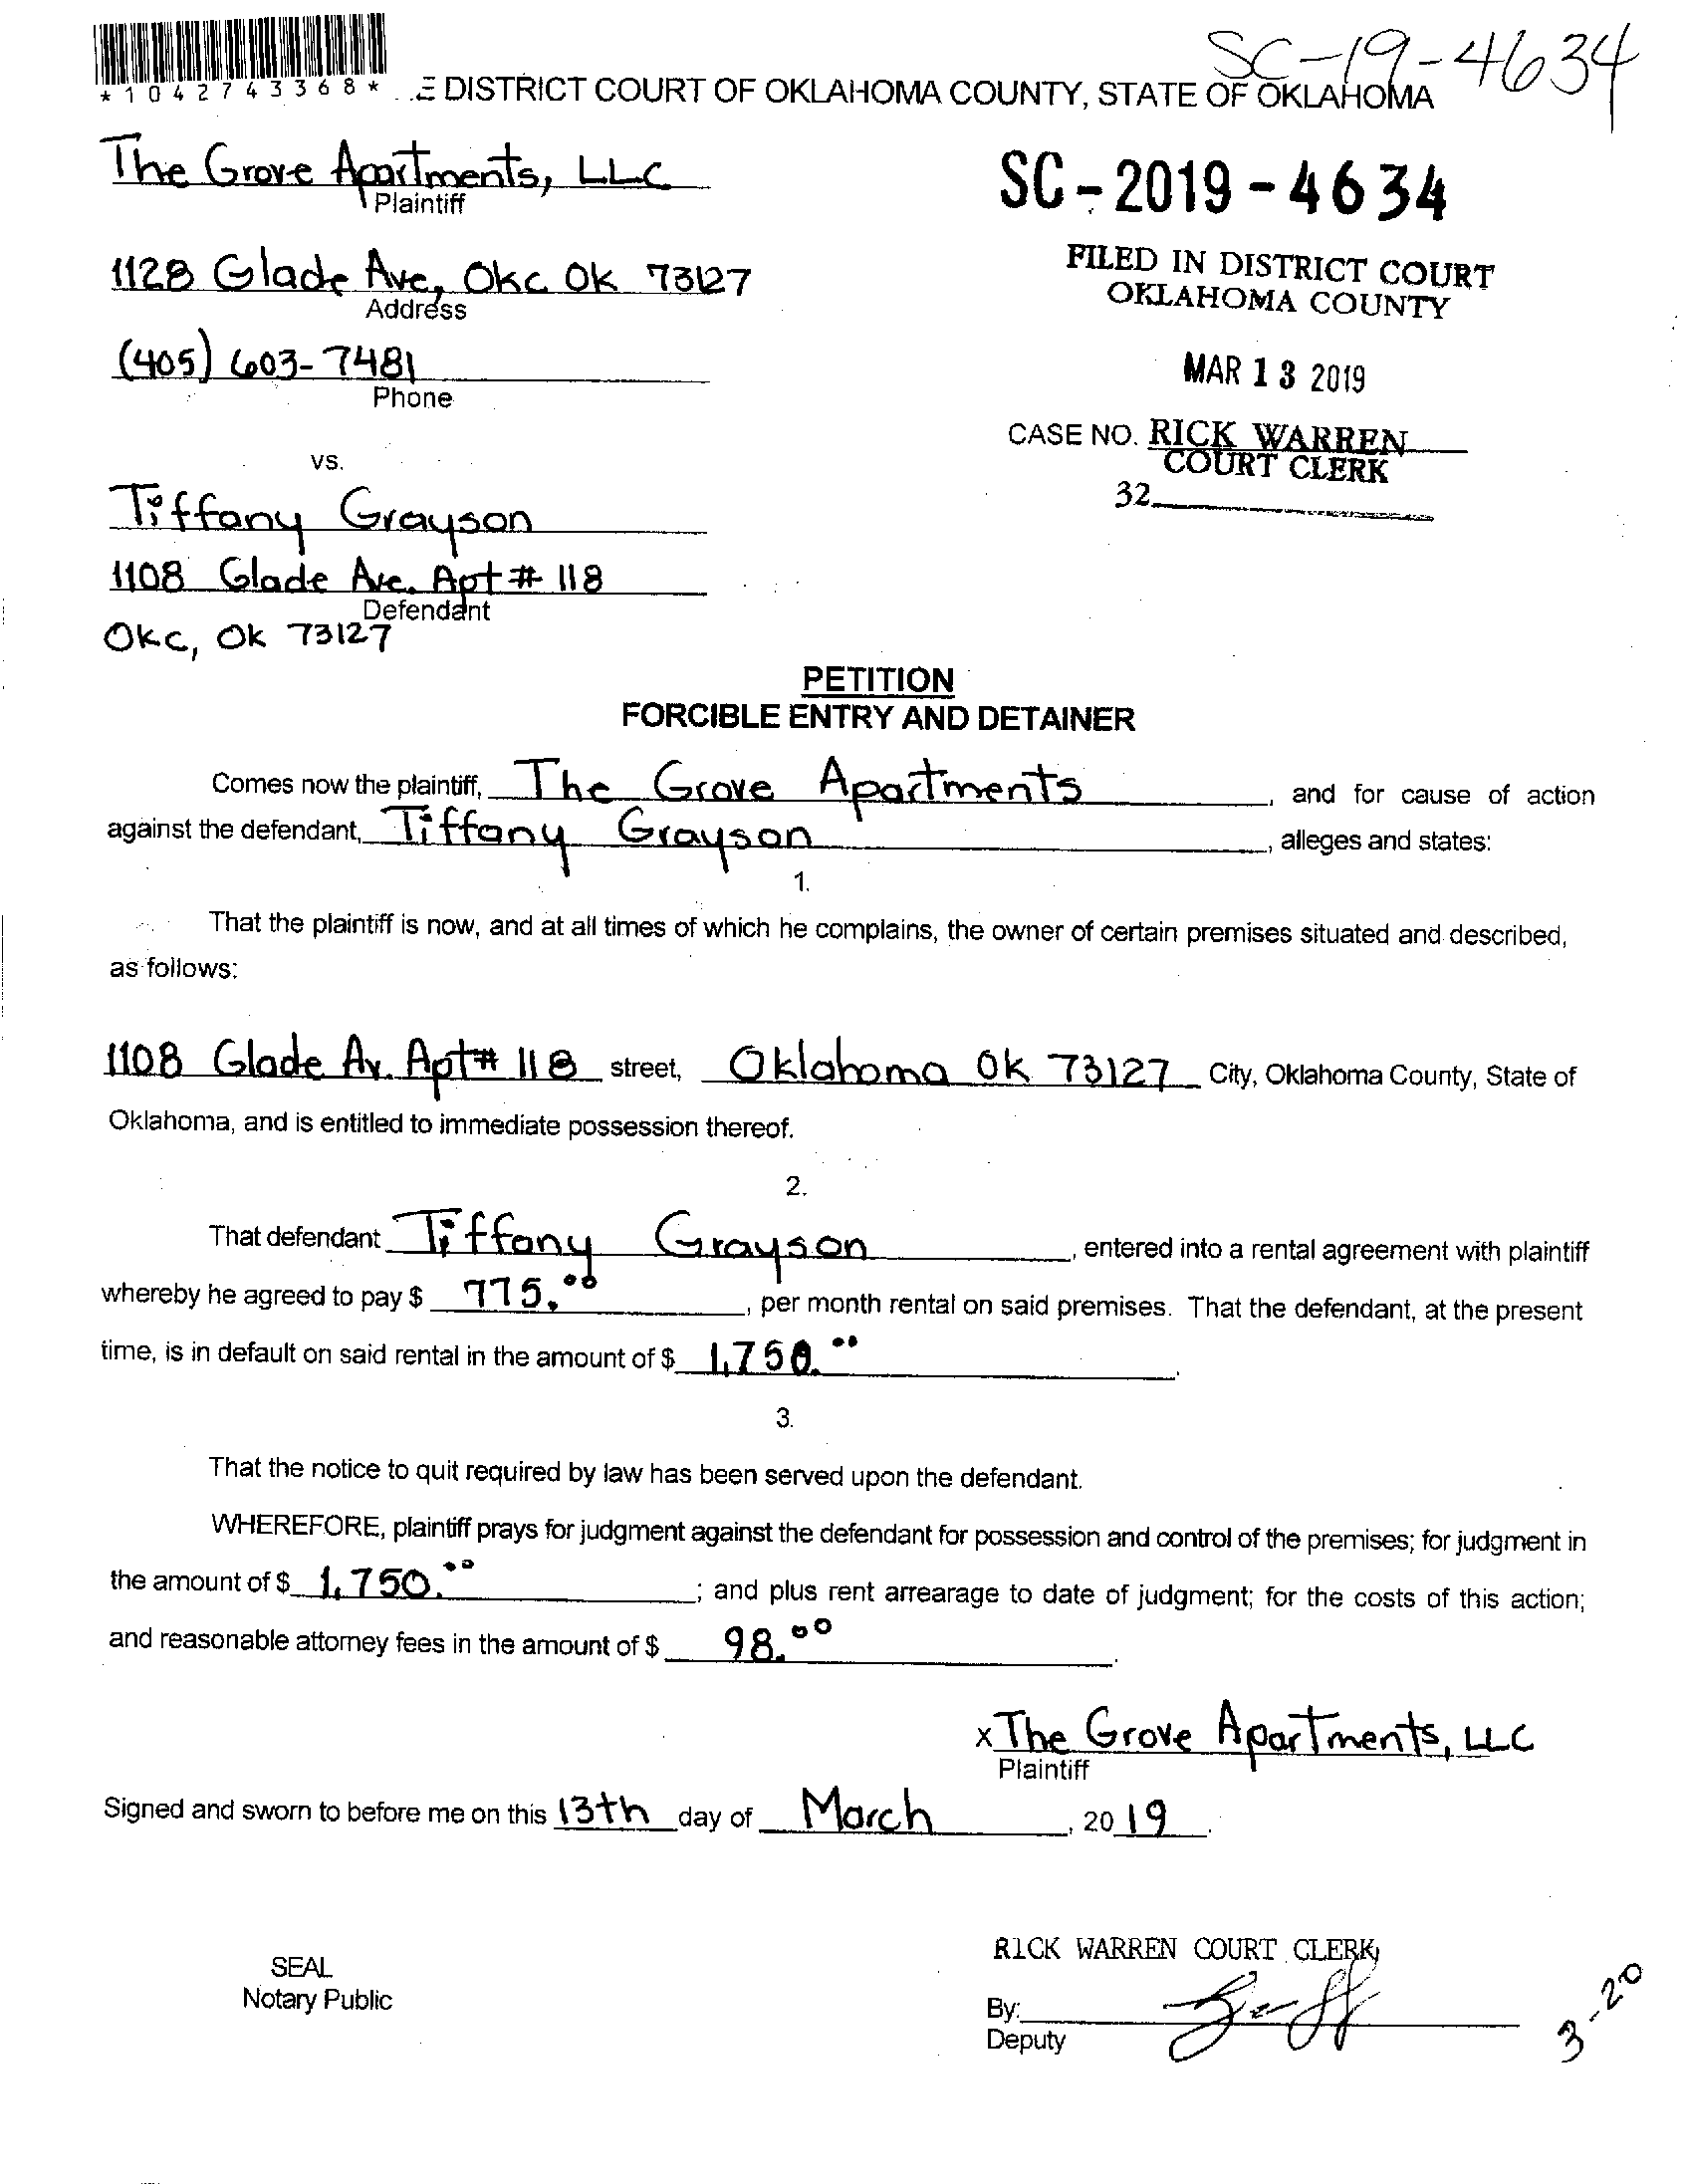 SC-19-4634
*1042743368* E DISTRICT COURT OF OKLAHOMA COUNTY, STATE OF OKLAHOMA
The Grove Apartments, LLC
Plaintiff
SC-2019-4634
1128 Glade Ave, Okc Ok 73127
Address
FILED IN DISTRICT COURT
OKLAHOMA COUNTY
(405) 603-7481
Phone
MAR 13 2019
CASE NO. RICK WARREN
COURT CLERK
32
vs.
Tiffany Grayson
1108 Glade Ave. Apt # 118
Defendant
Okc, Ok 73127
PETITION
FORCIBLE ENTRY AND DETAINER
Comes now the plaintiff, The Grove Apartments, and for cause of action
against the defendant, Tiffany Grayson, alleges and states:
1.
That the plaintiff is now, and at all times of which he complains, the owner of certain premises situated and described,
as follows:
1108 Glade Av. Apt# 118 street, Oklahoma Ok 73127 City, Oklahoma County, State of
Oklahoma, and is entitled to immediate possession thereof.
2.
That defendant Tiffany Grayson, entered into a rental agreement with plaintiff
whereby he agreed to pay $ 775.00, per month rental on said premises. That the defendant, at the present
time, is in default on said rental in the amount of $ 1,750.00.
3.
That the notice to quit required by law has been served upon the defendant.
WHEREFORE, plaintiff prays for judgment against the defendant for possession and control of the premises; for judgment in
the amount of $ 1,750.00; and plus rent arrearage to date of judgment; for the costs of this action;
and reasonable attorney fees in the amount of $ 98.00.
x The Grove Apartments, LLC
Plaintiff
Signed and sworn to before me on this 13th day of March, 2019.
SEAL
Notary Public
RICK WARREN COURT CLERK
By:
Deputy
3-20